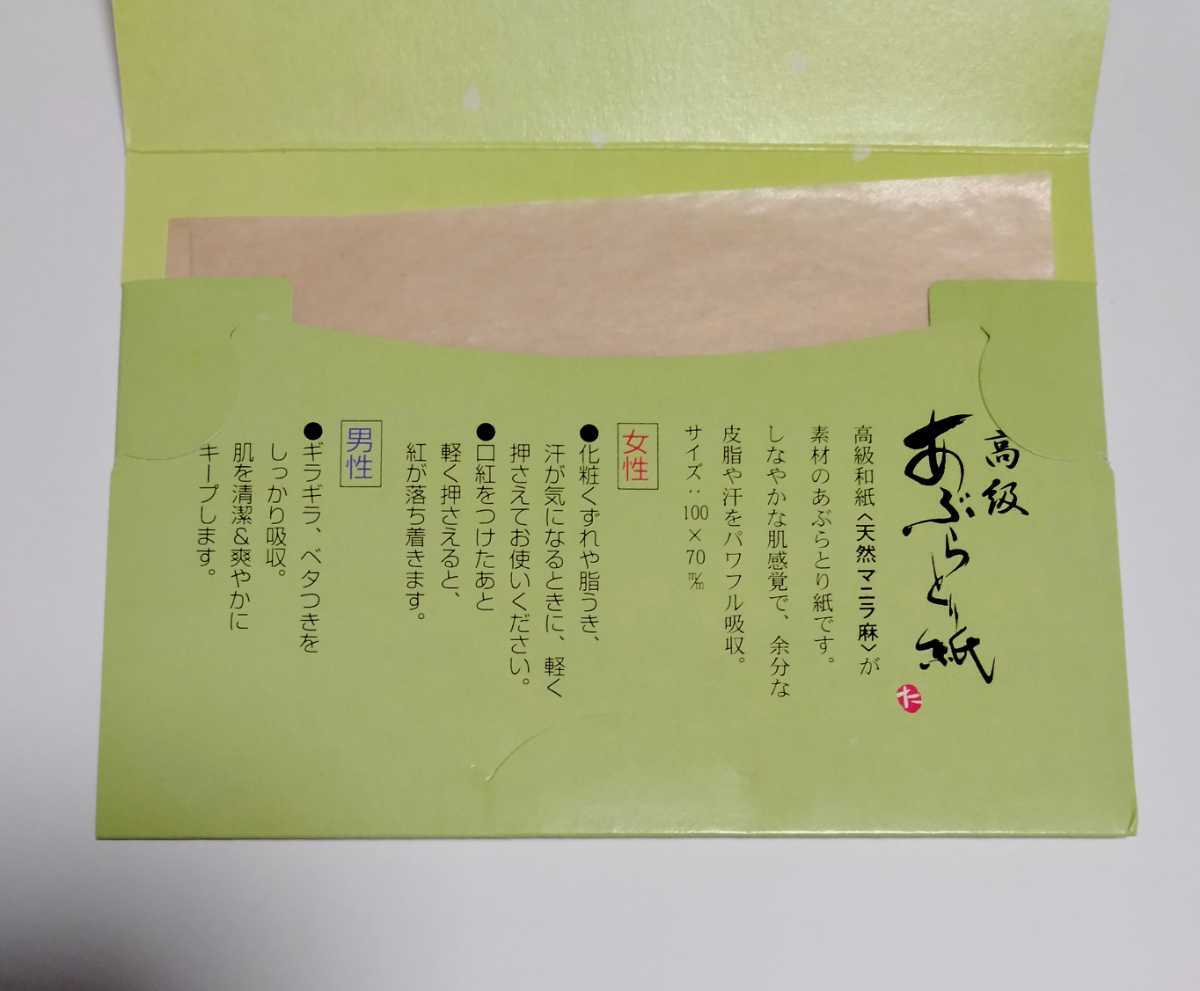 高級
あぶらとり紙
た
高級和紙〈天然マニラ麻〉が
素材のあぶらとり紙です。
しなやかな肌感覚で、余分な
皮脂や汗をパワフル吸収。
サイズ：100×70㎜
女性
●化粧くずれや脂うき、
汗が気になるときに、軽く
押さえてお使いください。
●口紅をつけたあと
軽く押さえると、
紅が落ち着きます。
男性
●ギラギラ、ベタつきを
しっかり吸収。
肌を清潔&爽やかに
キープします。